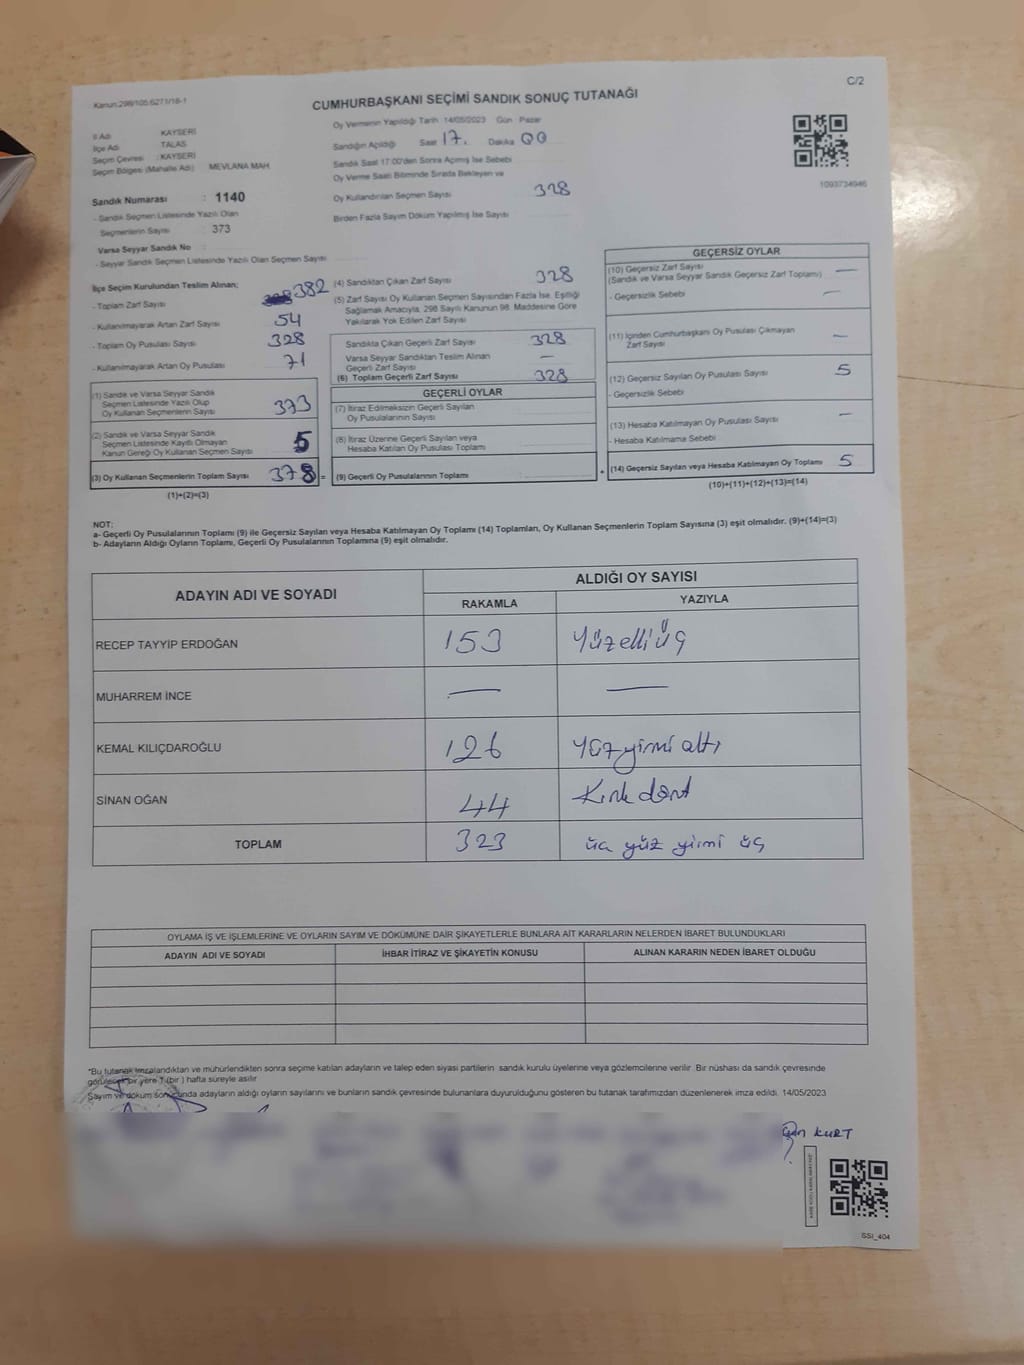 Kanun:298/105.6271/18-1
C/2
CUMHURBAŞKANI SEÇİMİ SANDIK SONUÇ TUTANAĞI
İl Adı KAYSERİ
İlçe Adı TALAS
Seçim Çevresi : KAYSERİ
Seçim Bölgesi (Mahalle Adı) MEVLANA MAH.
Sandık Numarası : 1140
- Sandık Seçmen Listesinde Yazılı Olan
Seçmenlerin Sayısı : 373
Varsa Seyyar Sandık No :
- Seyyar Sandık Seçmen Listesinde Yazılı Olan Seçmen Sayısı
Oy Vermenin Yapıldığı Tarih 14/05/2023 Gün : Pazar
Sandığın Açıldığı Saat 17. Dakika 00
Sandık Saat 17:00'den Sonra Açılmış İse Sebebi
Oy Verme Saati Bitiminde Sırada Bekleyen ve
Oy Kullandırılan Seçmen Sayısı 328
Birden Fazla Sayım Döküm Yapılmış İse Sayısı
1093734946
İlçe Seçim Kurulundan Teslim Alınan;
- Toplam Zarf Sayısı 382
- Kullanılmayarak Artan Zarf Sayısı 54
- Toplam Oy Pusulası Sayısı 328
- Kullanılmayarak Artan Oy Pusulası 71
(1) Sandık ve Varsa Seyyar Sandık
Seçmen Listesinde Yazılı Olup
Oy Kullanan Seçmenlerin Sayısı 373
(2) Sandık ve Varsa Seyyar Sandık
Seçmen Listesinde Kayıtlı Olmayan
Kanun Gereği Oy Kullanan Seçmen Sayısı 5
(3) Oy Kullanan Seçmenlerin Toplam Sayısı 378 =
(1)+(2)=(3)
(4) Sandıktan Çıkan Zarf Sayısı 328
(5) Zarf Sayısı Oy Kullanan Seçmen Sayısından Fazla İse, Eşitliği
Sağlamak Amacıyla, 298 Sayılı Kanunun 98. Maddesine Göre
Yakılarak Yok Edilen Zarf Sayısı
Sandıkta Çıkan Geçerli Zarf Sayısı 328
Varsa Seyyar Sandıktan Teslim Alınan
Geçerli Zarf Sayısı —
(6) Toplam Geçerli Zarf Sayısı 328
GEÇERLİ OYLAR
(7) İtiraz Edilmeksizin Geçerli Sayılan
Oy Pusulalarının Sayısı
(8) İtiraz Üzerine Geçerli Sayılan veya
Hesaba Katılan Oy Pusulası Toplamı
(9) Geçerli Oy Pusulalarının Toplamı +
GEÇERSİZ OYLAR
(10) Geçersiz Zarf Sayısı
(Sandık ve Varsa Seyyar Sandık Geçersiz Zarf Toplamı) —
- Geçersizlik Sebebi —
(11) İçinden Cumhurbaşkanı Oy Pusulası Çıkmayan
Zarf Sayısı —
(12) Geçersiz Sayılan Oy Pusulası Sayısı 5
- Geçersizlik Sebebi
(13) Hesaba Katılmayan Oy Pusulası Sayısı —
- Hesaba Katılmama Sebebi
(14) Geçersiz Sayılan veya Hesaba Katılmayan Oy Toplamı 5
(10)+(11)+(12)+(13)=(14)
NOT:
a- Geçerli Oy Pusulalarının Toplamı (9) ile Geçersiz Sayılan veya Hesaba Katılmayan Oy Toplamı (14) Toplamları, Oy Kullanan Seçmenlerin Toplam Sayısına (3) eşit olmalıdır. (9)+(14)=(3)
b- Adayların Aldığı Oyların Toplamı, Geçerli Oy Pusulalarının Toplamına (9) eşit olmalıdır.
ADAYIN ADI VE SOYADI ALDIĞI OY SAYISI
RAKAMLA YAZIYLA
RECEP TAYYİP ERDOĞAN 153 Yüzelliüç
MUHARREM İNCE — —
KEMAL KILIÇDAROĞLU 126 Yüzyirmi altı
SİNAN OĞAN 44 Kırk dört
TOPLAM 323 üç yüz yirmi üç
OYLAMA İŞ VE İŞLEMLERİNE VE OYLARIN SAYIM VE DÖKÜMÜNE DAİR ŞİKAYETLERLE BUNLARA AİT KARARLARIN NELERDEN İBARET BULUNDUKLARI
ADAYIN ADI VE SOYADI İHBAR İTİRAZ VE ŞİKAYETİN KONUSU ALINAN KARARIN NEDEN İBARET OLDUĞU
*Bu tutanak imzalandıktan ve mühürlendikten sonra seçime katılan adayların ve talep eden siyasi partilerin sandık kurulu üyelerine veya gözlemcilerine verilir. Bir nüshası da sandık çevresinde
görülecek bir yere 1 (bir) hafta süreyle asılır
Sayım ve döküm sonucunda adayların aldığı oyların sayılarını ve bunların sandık çevresinde bulunanlara duyurulduğunu gösteren bu tutanak tarafımızdan düzenlenerek imza edildi. 14/05/2023
KURT
SSI_404